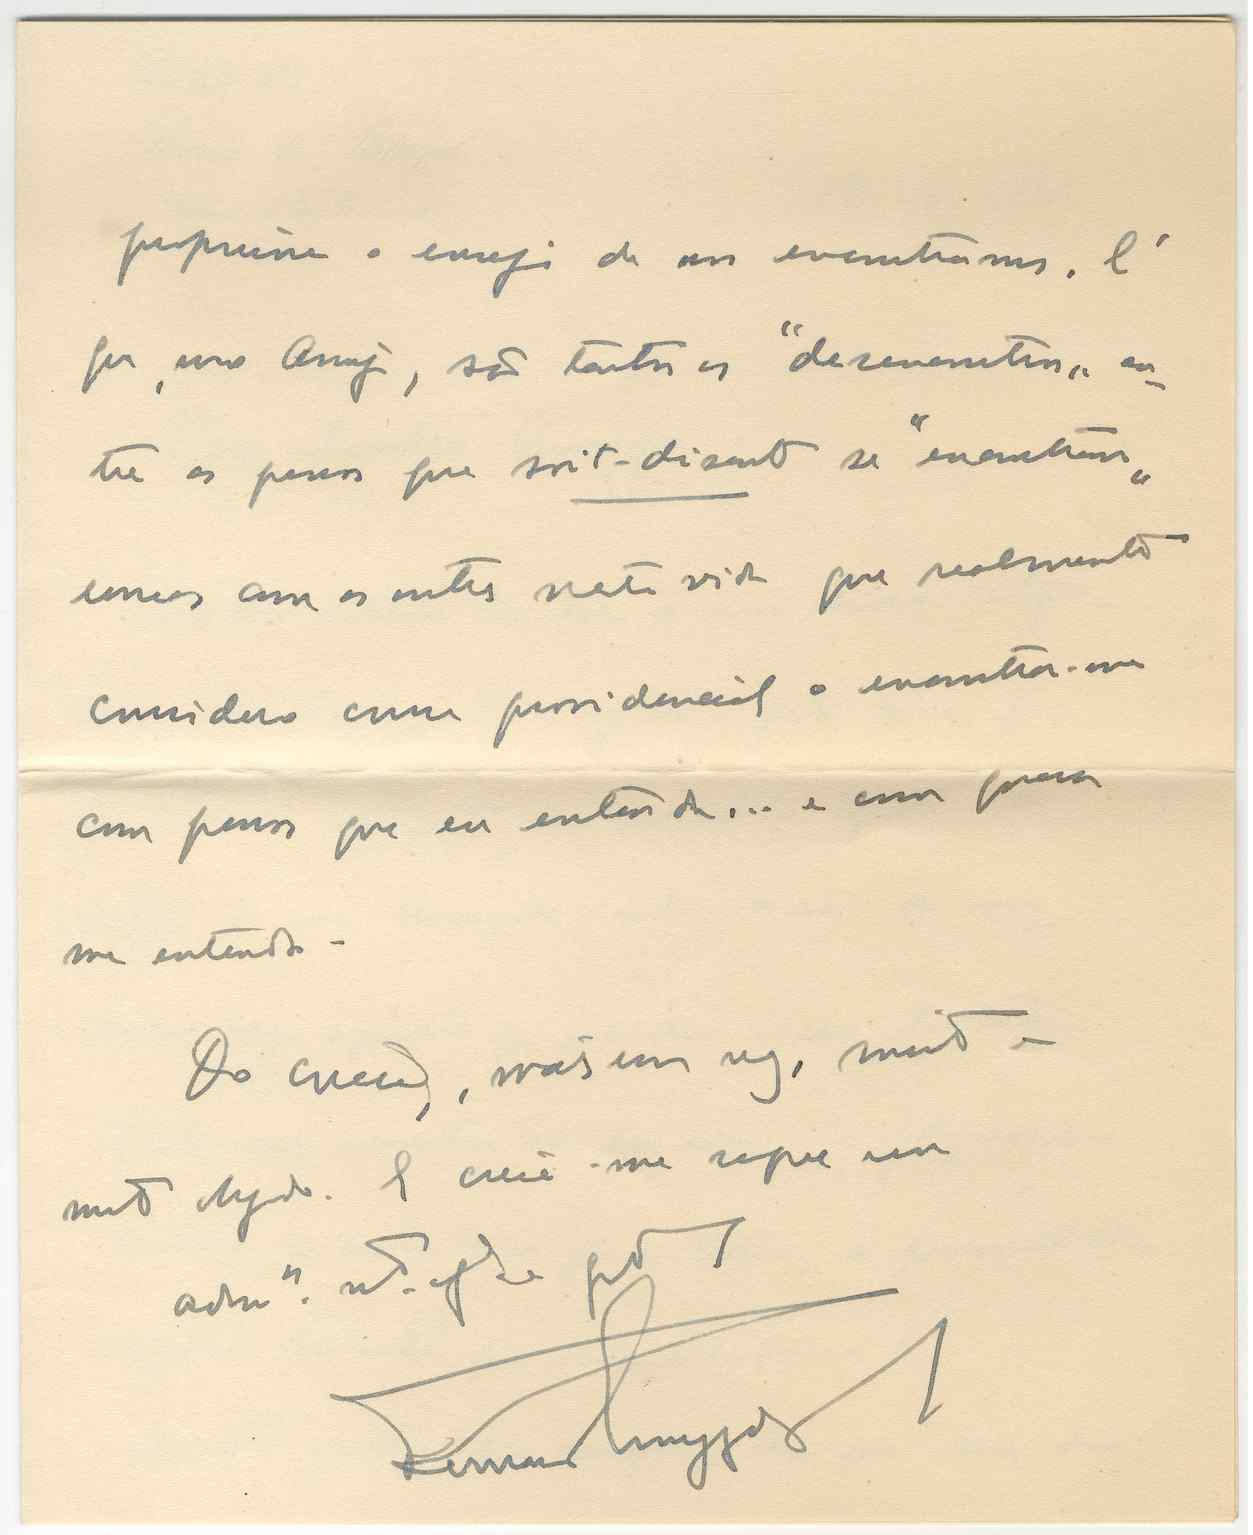 proporcione o ensejo de nos encontrarmos. É
que, meu Amigo, são tantos os "desencontros" en-
tre as pessoas que soit-disant se "encontram"
umas com as outras nesta vida que realmente
considero como providencial o encontrar-me
com pessoas que eu entenda... e com quem
me entenda -
Do coração, mais uma vez, muito e
muito obrigado. E creia-me sempre seu
adm.ᵒʳ